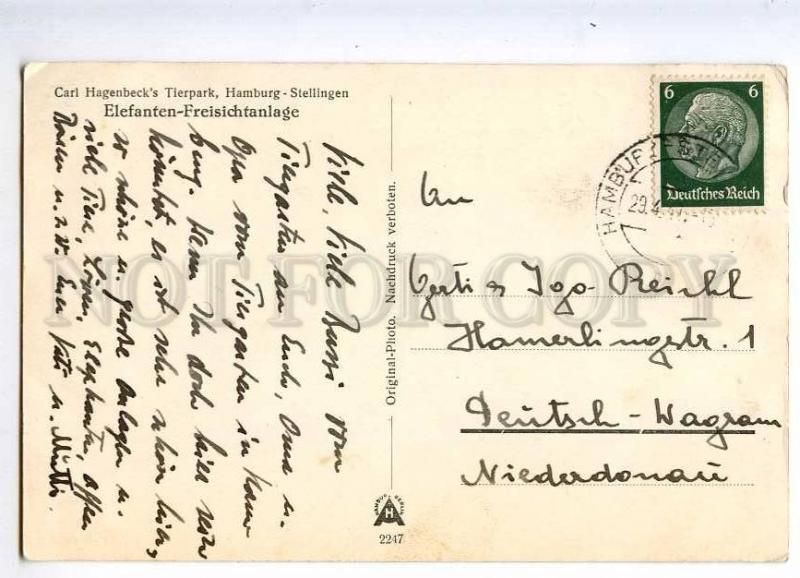 Carl Hagenbeck's Tierpark, Hamburg-Stellingen
Elefanten-Freisichtanlage
Viele, viele Bussi vom
Tiergarten an Euch, Oma u.
Opa vom Tiergarten in Ham
burg. Wenn Ihr doch hier sein
könntet, es ist sehr schön hier,
so schöne u. große Anlagen u.
viele Tiere, Löwen, Elephanten, Affen
Bären u.s.w. Euer u. Mutti.
Original-Photo. Nachdruck verboten.
HAMBURG BERLIN
H
2247
6 6
Deutsches Reich
HAMBURG
29.4.
An
Gerti u Igo Reichl
Hamerlingstr. 1
Deutsch-Wagram
Niederdonau
NOT FOR COPY